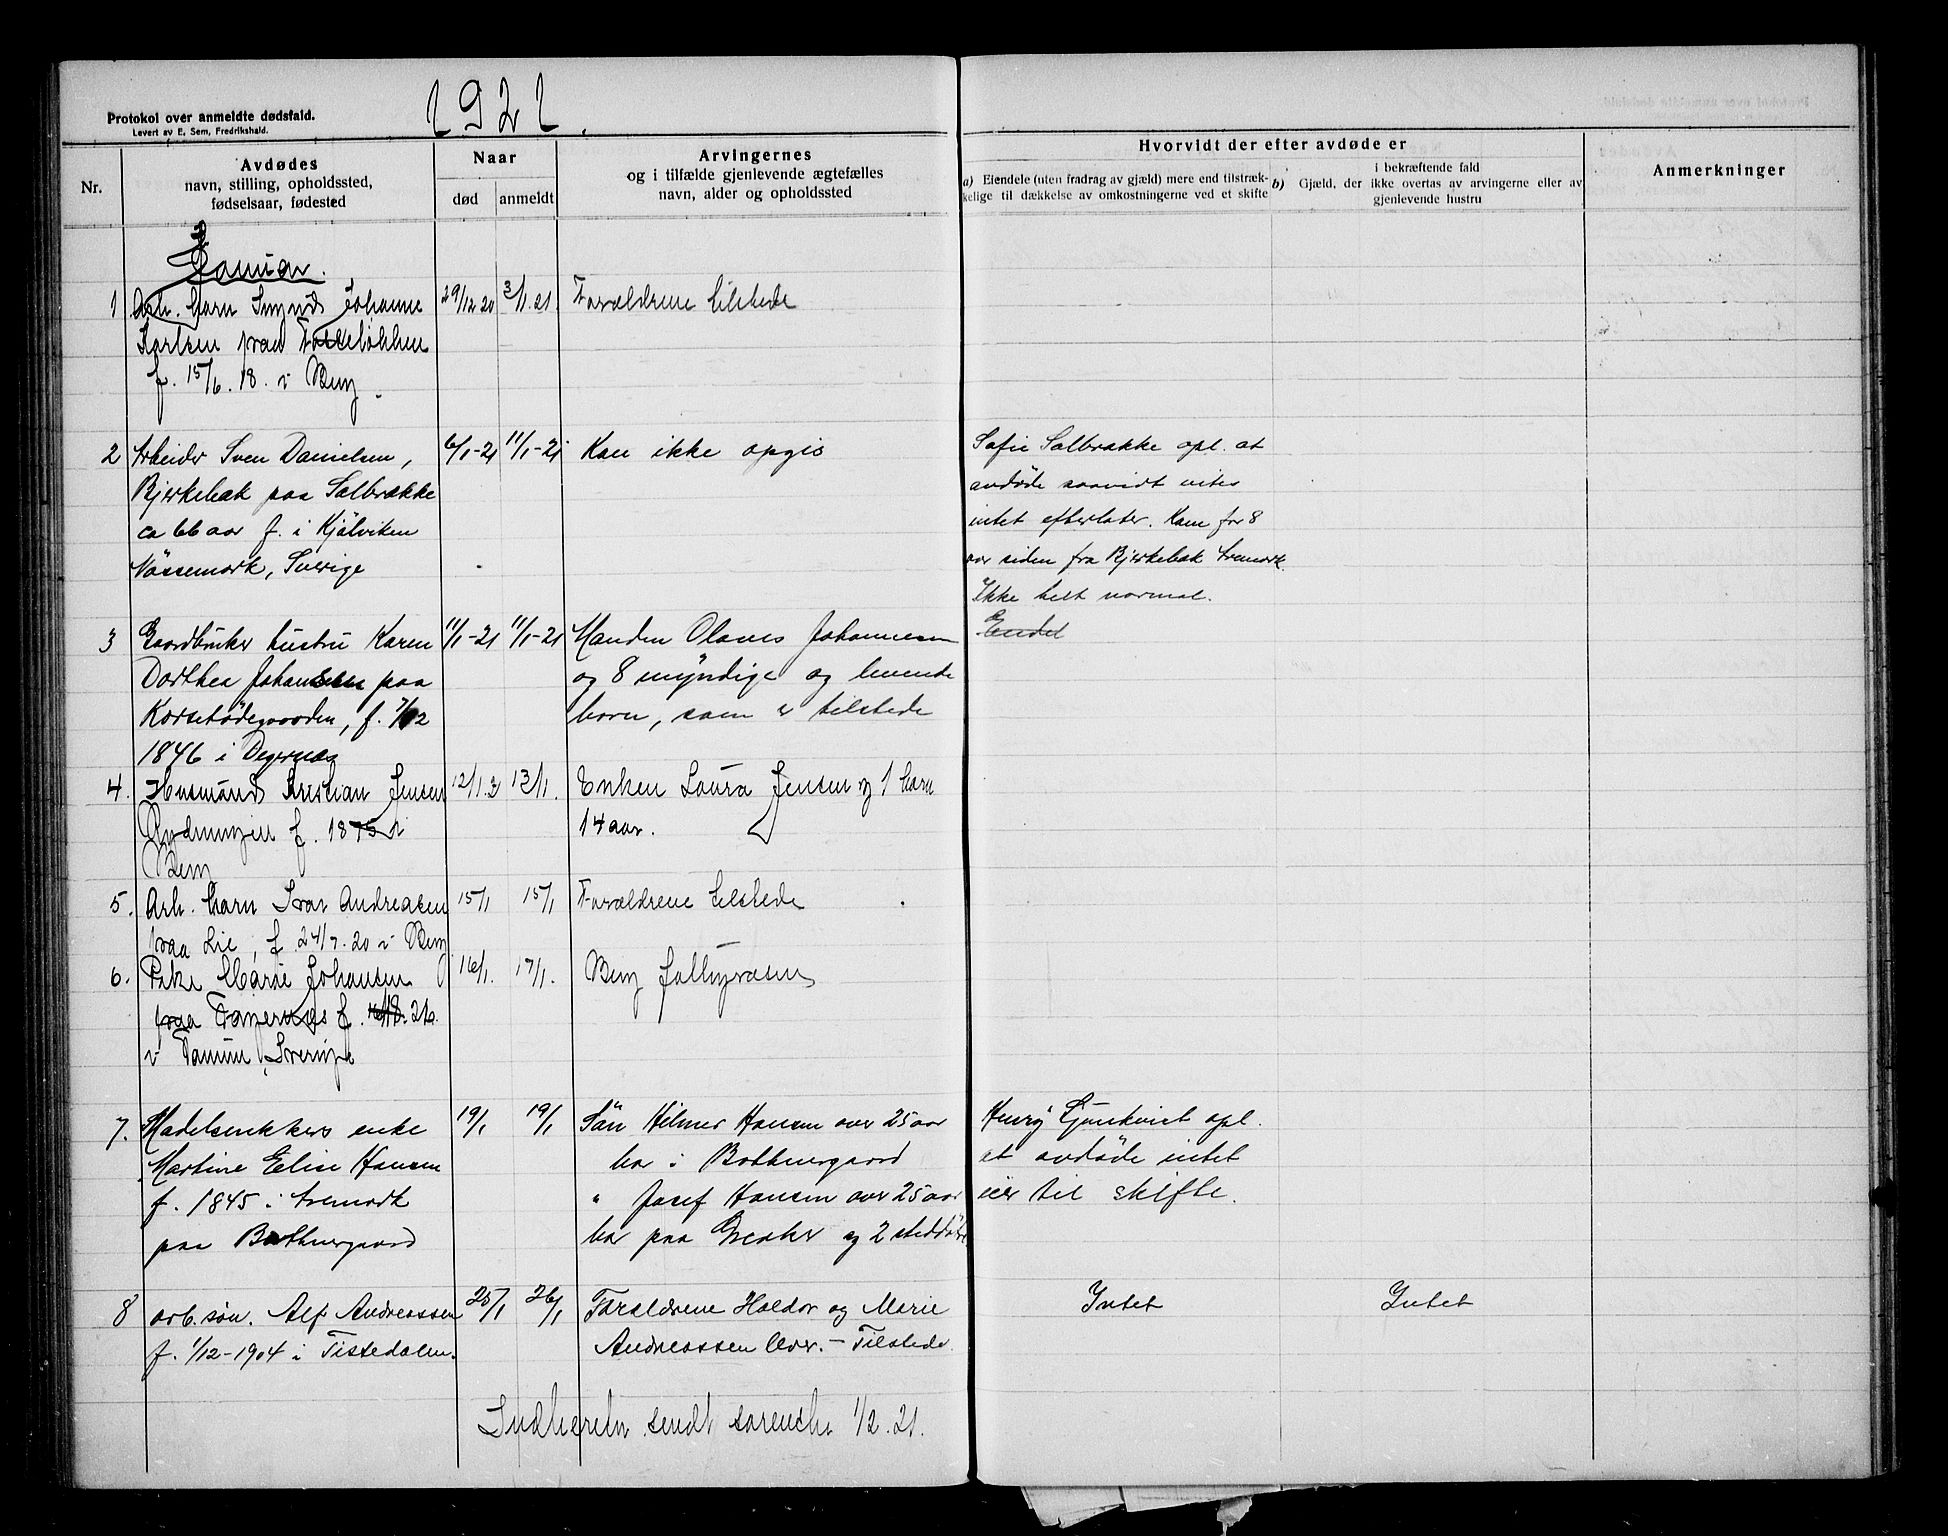 Protokol over anmeldte dødsfald.
Levert av E. Sem, Fredrikshald.
1921.
Nr.
Avdødes
navn, stilling, opholdssted,
fødselsaar, fødested
Naar
død
anmeldt
Arvingernes
og i tilfælde gjenlevende ægtefælles
navn, alder og opholdssted
Hvorvidt der efter avdøde er
a) Eiendele (uten fradrag av gjæld) mere end tilstræk-
kelige til dækkelse av omkostningerne ved et skifte
b) Gjæld, der i bekræftende fald
ikke overtas av arvingerne eller av
gjenlevende hustru
Anmerkninger
Januar.
1 Arb. barn Johanne
Karlsen paa Fosseløkken
f. 15/6. 18. i Berg.
29/12 20 3/1. 21.
Forældrene tilstede
2 Arbeider Sven Danielsen,
Bjerkebæk paa Solbrække
ca 66 aar f. i Kjälviken
Nössemork, Sverige
6/1-21 11/1-21
Kan ikke opgis
Sofie Solbrække opl. at
avdöde saavidt vites
intet efterlater. Kom for 8
aar siden fra Bjerkebæk Aremark.
Ikke helt normal.
3 Gaardbruker hustru Karen
Dorthea Johansen paa
Korsetödegaarden, f. 7/12
1846 i Degernæs
11/1-21 11/1-21
Manden Olaves Johannesen
og 8 myndige og levende
barn, som er tilstede
4. Husmand Kristian Jensen
f. 1875 i
Berg
12/1.21 13/1.
Enken Laura Jensen og 1 barn
14 aar.
5. Arb. barn Ivar Andreasen
paa Lie, f. 24/7. 20 i Berg
15/1 15/1
Forældrene tilstede
6. Pike Marie Johansen
paa f. 26.
i Tanum, Sverige
16/1. 17/1.
Berg fattigvæsen
7. enke
Martine Elise Hansen
f. 1845 i Aremark
paa Bøthnergaard
19/1 19/1
Sön Hilmer Hansen over 25 aar
bor i Bøthnergaard
" Josef Hansen over 25 aar
bor paa Greaker og 2
Henry opl.
at avdöde intet
eier til skifte.
8 arb. søn. Alf Andreassen
f. 1/12-1904 i Tistedalen.
25/1 26/1
Forældrene Haldor og Marie
Andreassen lever. – Tilstede.
Intet
Intet
Indberetn. sendt sorenskr. 1/2. 21.